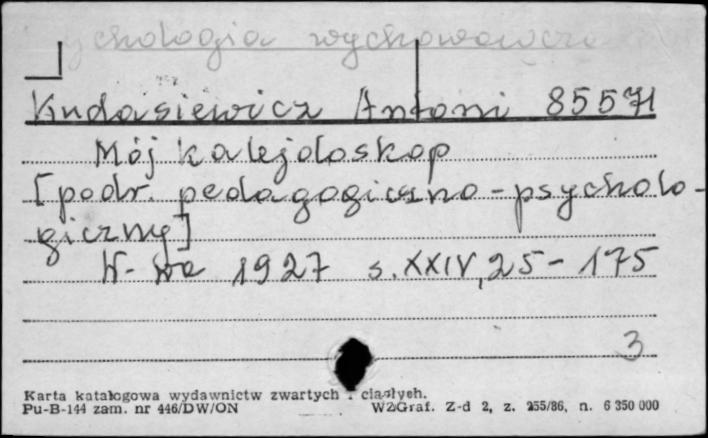 ychologia wychowawcza
Kudasiewicz Antoni 85571
Mój kalejdoskop
[podr. pedagogiczno-psycholo-
giczny]
W-wa 1927 s. XXIV, 25-175
3
Karta katalogowa wydawnictw zwartych i ciągłych.
Pu-B-144 zam. nr 446/DW/ON WZGraf. Z-d 2, z. 255/86, n. 6 350 000